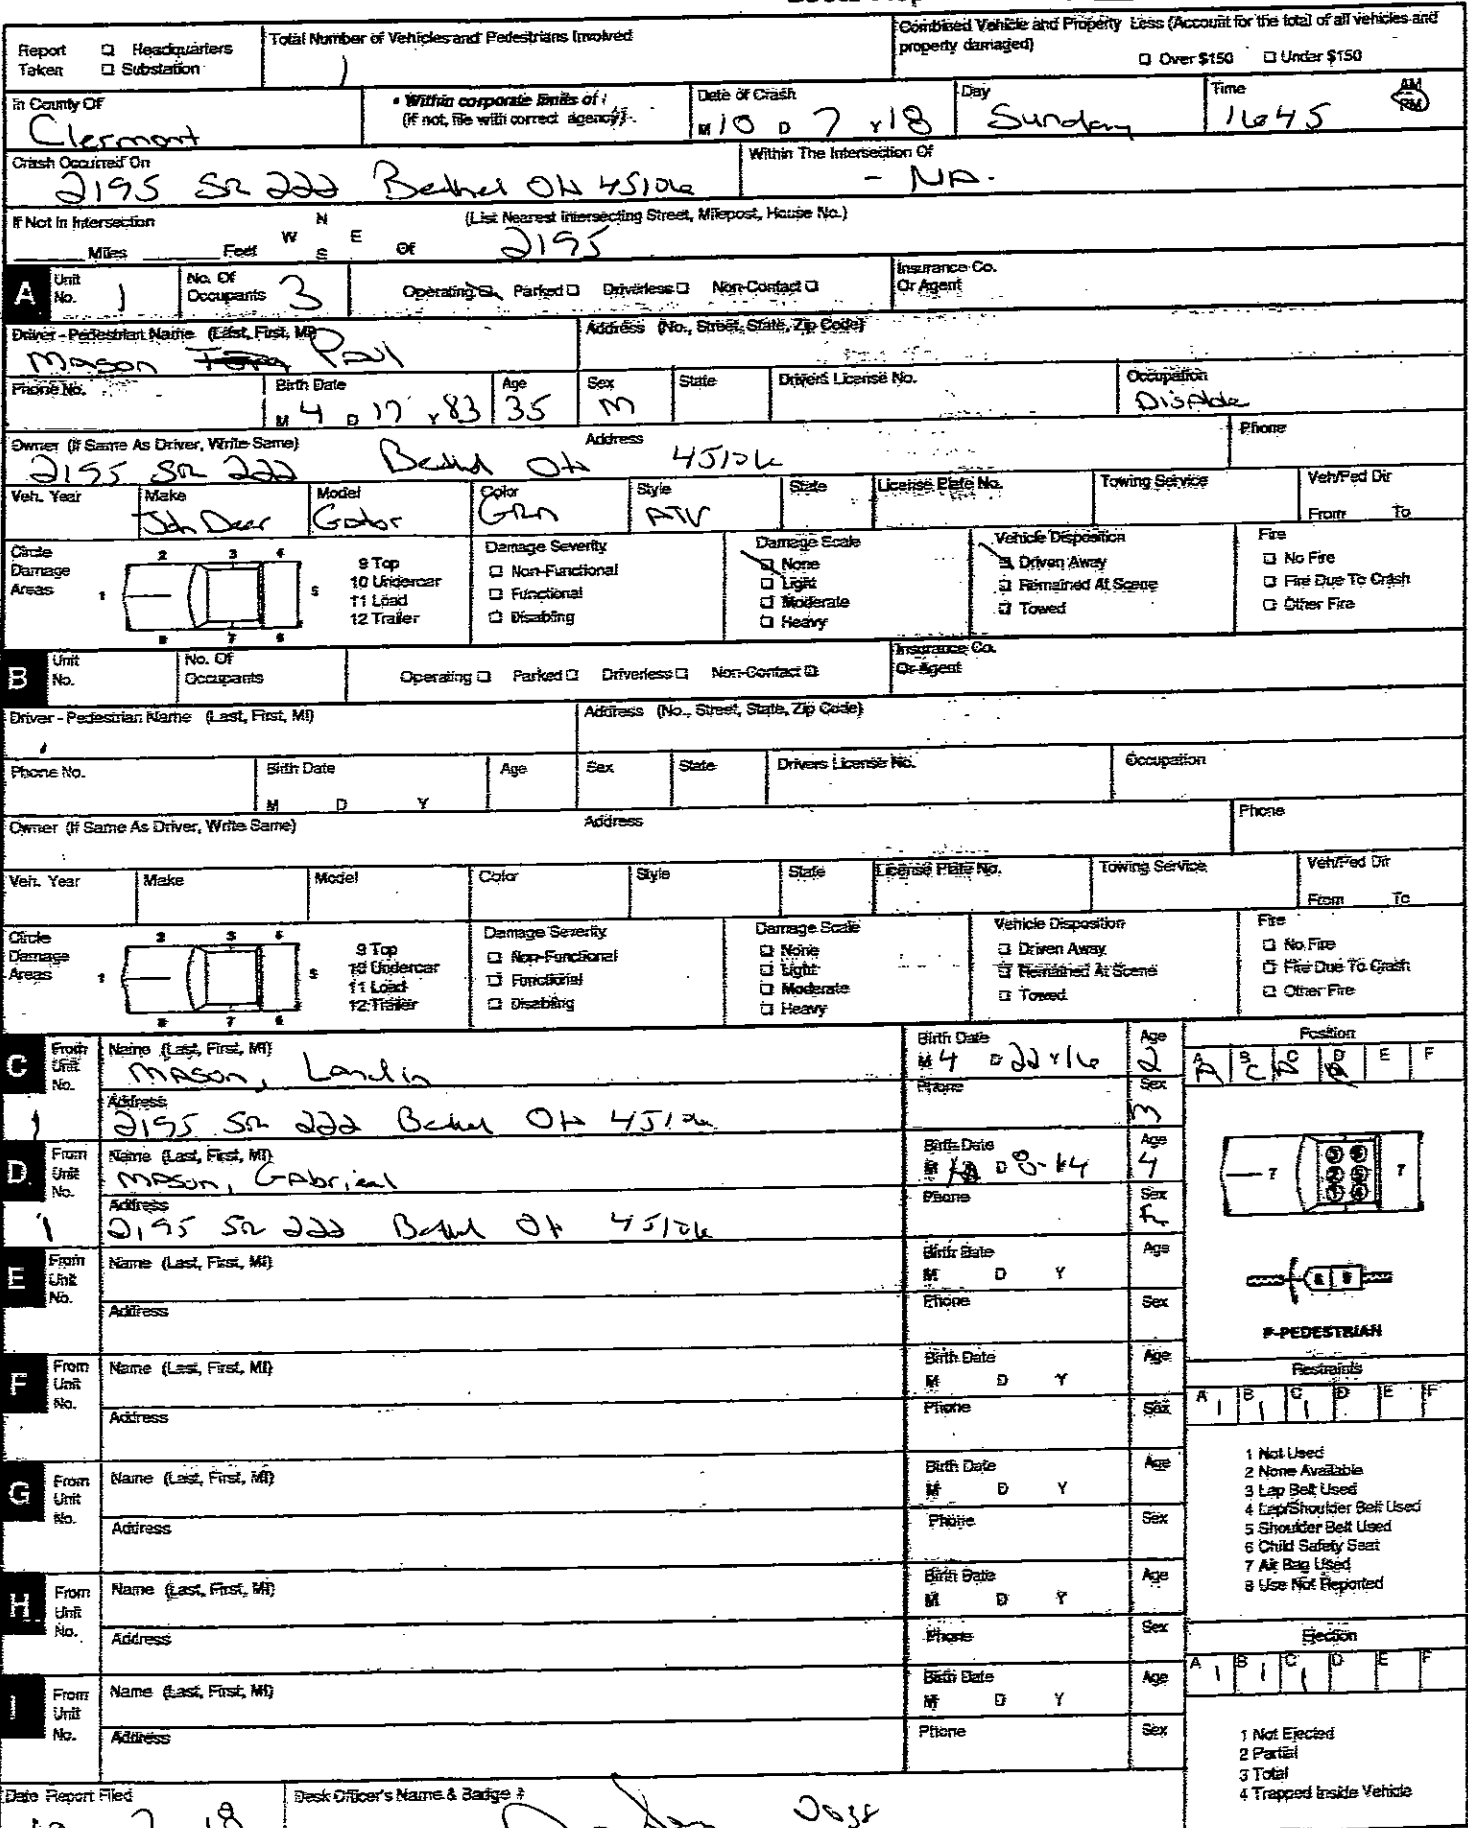 Report Taken ☐ Headquarters ☐ Substation
Total Number of Vehicles and Pedestrians Involved
1
Combined Vehicle and Property Less (Account for the total of all vehicles and property damaged)
☐ Over $150 ☐ Under $150
In County Of
Clermont
• Within corporate limits of
(if not, file with correct agency)
Date of Crash
M 10 D 7 Y 18
Day
Sunday
Time
1645
AM
PM
Crash Occurred On
2195 SR 222 Bethel OH 45106
Within The Intersection Of
- NA -
If Not In Intersection
Miles Feet
N
W E
S
Of
(List Nearest Intersecting Street, Milepost, House No.)
2195
A Unit No. 1
No. Of Occupants 3
Operating ☐ Parked ☐ Driverless ☐ Non-Contact ☐
Insurance Co. Or Agent
Driver - Pedestrian Name (Last, First, MI)
Mason Paul
Address (No., Street, State, Zip Code)
Phone No.
Birth Date
M 4 D 17 Y 83
Age
35
Sex
M
State
Drivers License No.
Occupation
Owner (If Same As Driver, Write Same)
2195 SR 222 Bethel OH 45106
Address
Phone
Veh. Year
Make
John Deer
Model
Gator
Color
GRN
Style
ATV
State
License Plate No.
Towing Service
Veh/Ped Dir
From To
Circle Damage Areas
1 2 3 4 5 6 7 8
9 Top
10 Undercar
11 Load
12 Trailer
Damage Severity
☐ Non-Functional
☐ Functional
☐ Disabling
Damage Scale
☐ None
☐ Light
☐ Moderate
☐ Heavy
Vehicle Disposition
☐ Driven Away
☐ Remained At Scene
☐ Towed
Fire
☐ No Fire
☐ Fire Due To Crash
☐ Other Fire
B Unit No.
No. Of Occupants
Operating ☐ Parked ☐ Driverless ☐ Non-Contact ☐
Insurance Co. Or Agent
Driver - Pedestrian Name (Last, First, MI)
Address (No., Street, State, Zip Code)
Phone No.
Birth Date
M D Y
Age
Sex
State
Drivers License No.
Occupation
Owner (If Same As Driver, Write Same)
Address
Phone
Veh. Year
Make
Model
Color
Style
State
License Plate No.
Towing Service
Veh/Ped Dir
From To
Circle Damage Areas
1 2 3 4 5 6 7 8
9 Top
10 Undercar
11 Load
12 Trailer
Damage Severity
☐ Non-Functional
☐ Functional
☐ Disabling
Damage Scale
☐ None
☐ Light
☐ Moderate
☐ Heavy
Vehicle Disposition
☐ Driven Away
☐ Remained At Scene
☐ Towed
Fire
☐ No Fire
☐ Fire Due To Crash
☐ Other Fire
C From Unit No. 1
Name (Last, First, MI)
Mason, Landin
Birth Date
M 4 D 22 Y 16
Age
2
Address
2195 SR 222 Bethel OH 45106
Phone
Sex
M
D From Unit No. 1
Name (Last, First, MI)
Mason, Gabrieal
Birth Date
8-14
Age
4
Address
2195 SR 222 Bethel OH 45106
Phone
Sex
F
E From Unit No.
Name (Last, First, MI)
Birth Date
M D Y
Age
Address
Phone
Sex
F From Unit No.
Name (Last, First, MI)
Birth Date
M D Y
Age
Address
Phone
Sex
G From Unit No.
Name (Last, First, MI)
Birth Date
M D Y
Age
Address
Phone
Sex
H From Unit No.
Name (Last, First, MI)
Birth Date
M D Y
Age
Address
Phone
Sex
I From Unit No.
Name (Last, First, MI)
Birth Date
M D Y
Age
Address
Phone
Sex
Position
A B C D E F
7 7
P-PEDESTRIAN
Restraints
A B C D E F
1 1 1
1 Not Used
2 None Available
3 Lap Belt Used
4 Lap/Shoulder Belt Used
5 Shoulder Belt Used
6 Child Safety Seat
7 Air Bag Used
8 Use Not Reported
Ejection
A B C D E F
1 1 1
1 Not Ejected
2 Partial
3 Total
4 Trapped Inside Vehicle
Date Report Filed
Desk Officer's Name & Badge #